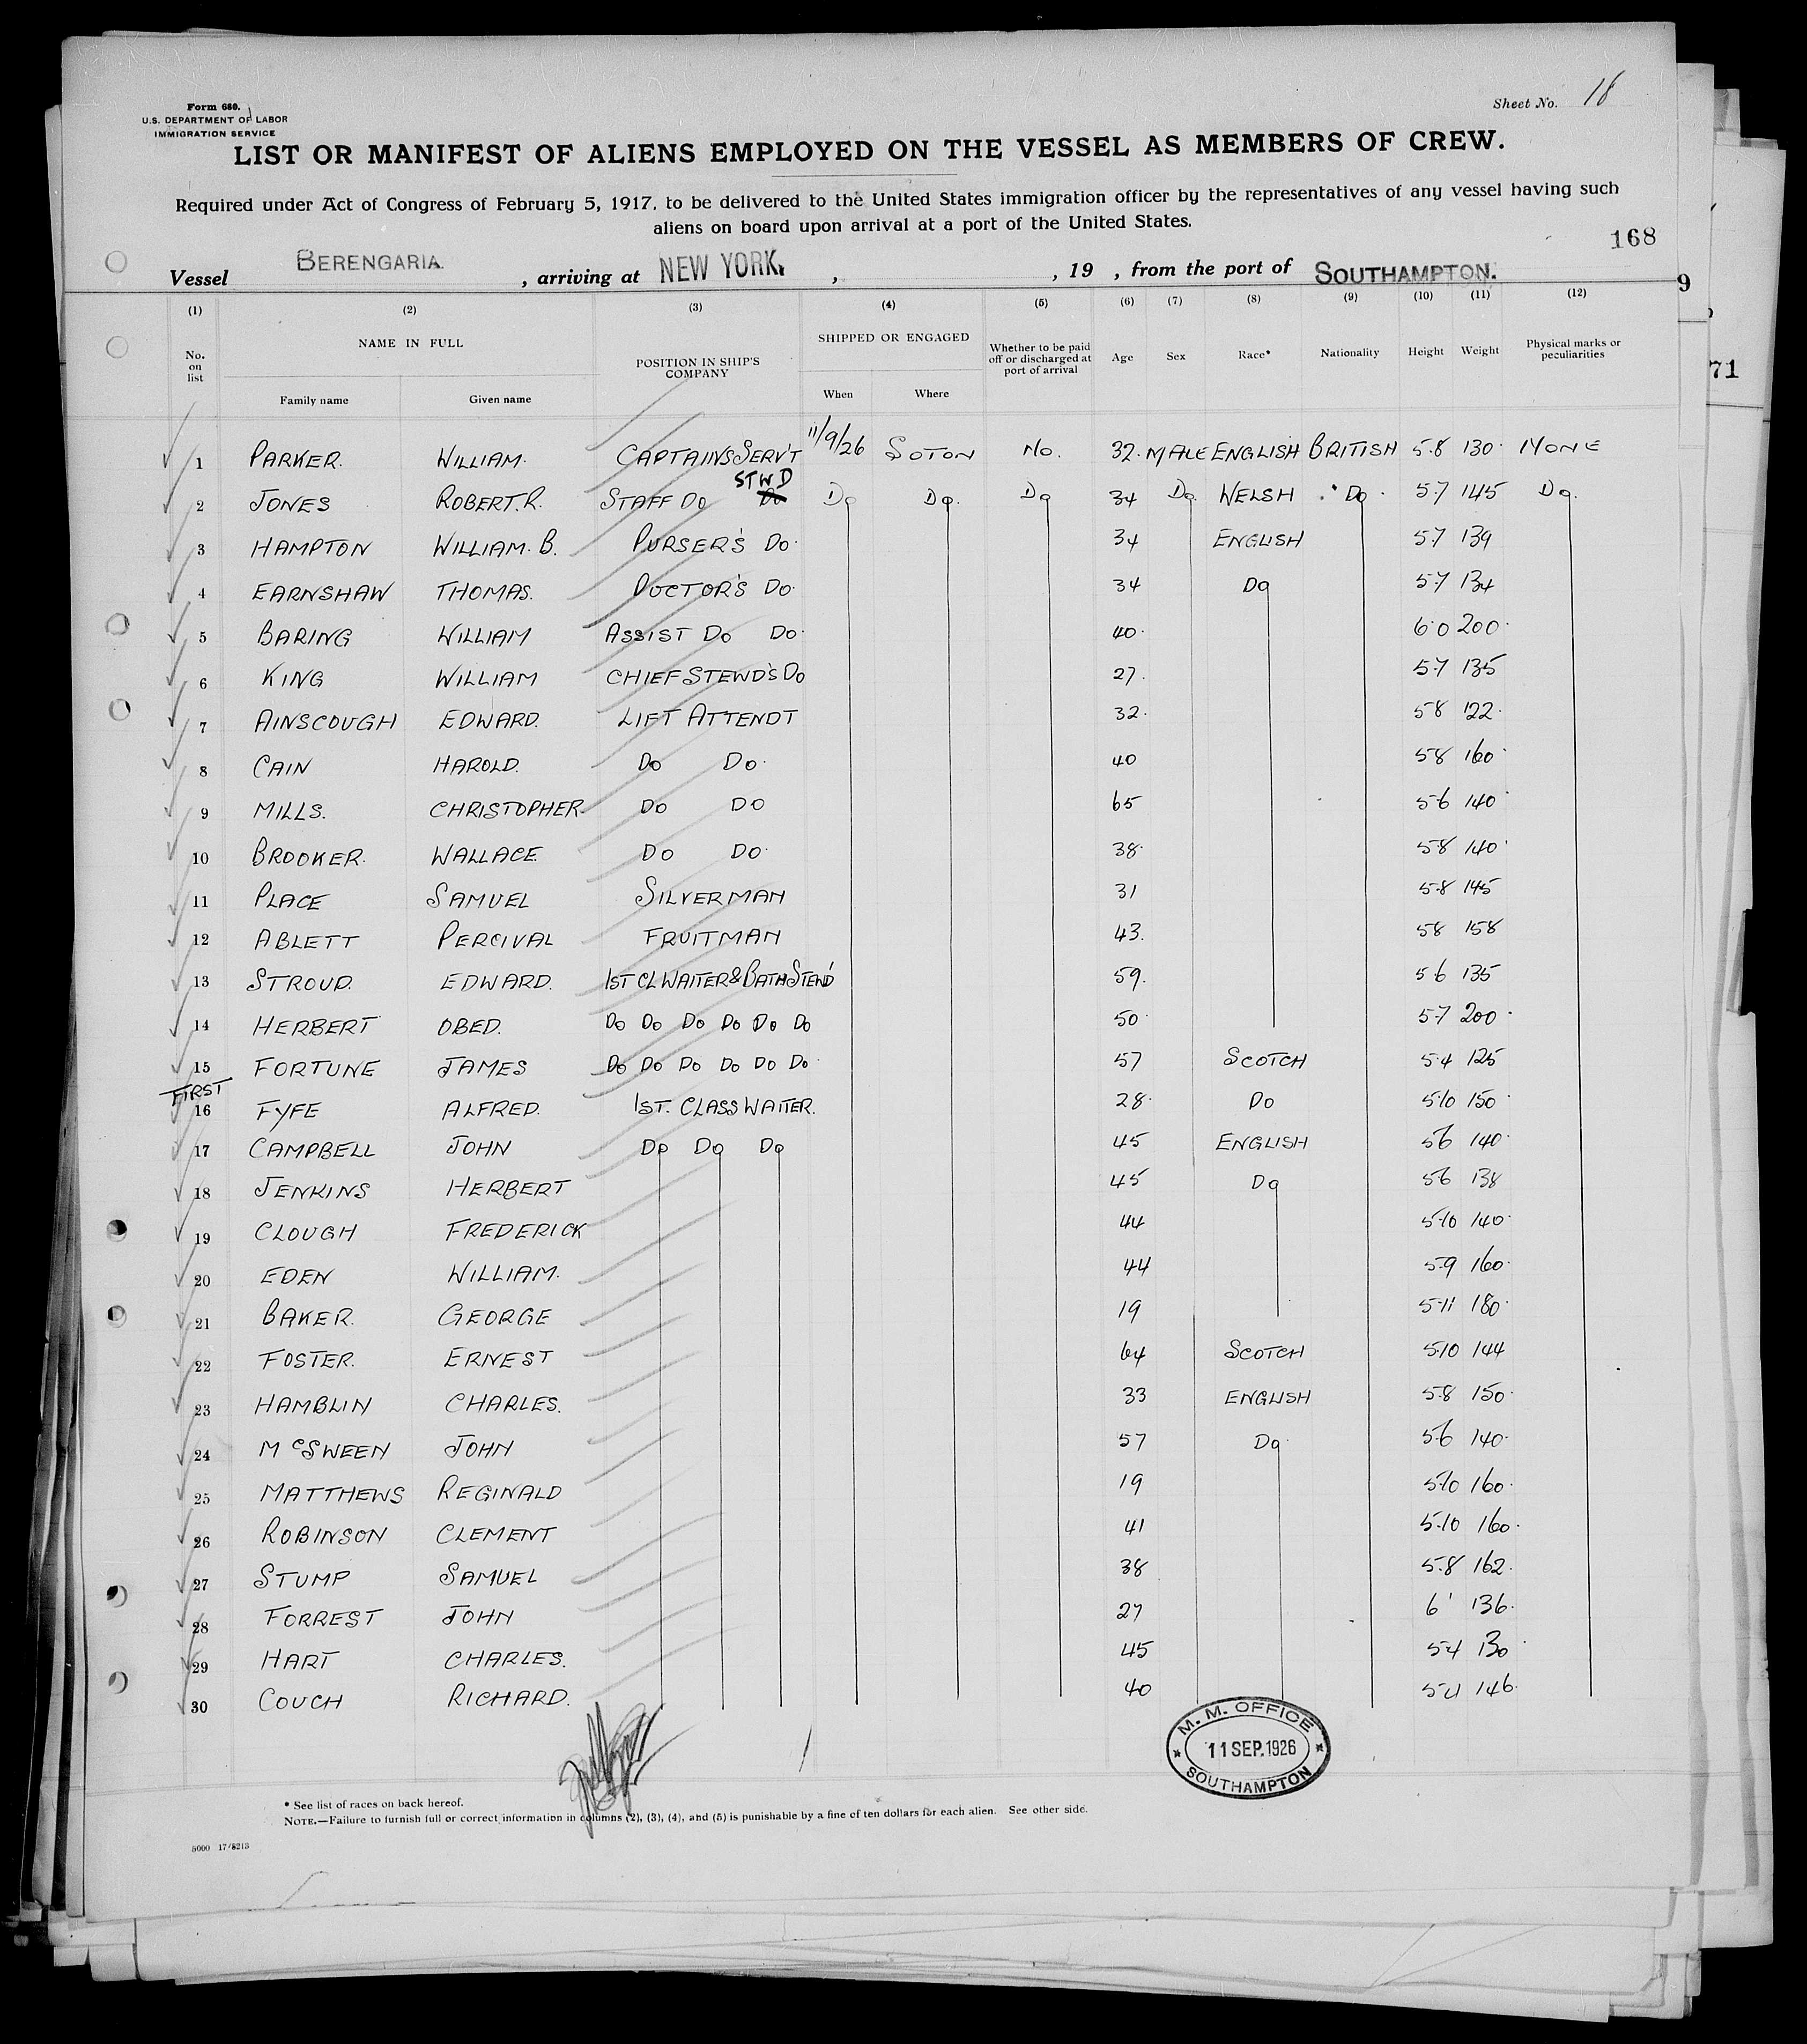 Form 680.
U.S. DEPARTMENT OF LABOR
IMMIGRATION SERVICE
Sheet No. 18
LIST OR MANIFEST OF ALIENS EMPLOYED ON THE VESSEL AS MEMBERS OF CREW.
Required under Act of Congress of February 5, 1917, to be delivered to the United States immigration officer by the representatives of any vessel having such
aliens on board upon arrival at a port of the United States.
168
Vessel BERENGARIA , arriving at NEW YORK. , , 19 , from the port of SOUTHAMPTON.
9
71
(1) (2) (3) (4) (5) (6) (7) (8) (9) (10) (11) (12)
No. on list NAME IN FULL POSITION IN SHIP'S COMPANY SHIPPED OR ENGAGED Whether to be paid off or discharged at port of arrival Age Sex Race* Nationality Height Weight Physical marks or peculiarities
Family name Given name When Where
1 PARKER. WILLIAM. CAPTAINS SERV'T 11/9/26 SOTON No. 32. MALE ENGLISH BRITISH 5.8 130 NONE
2 JONES ROBERT. R. STAFF DO STWD Do Do. Do 34 Do WELSH Do 5.7 145 Do.
3 HAMPTON WILLIAM. B. PURSER'S DO. 34 ENGLISH 5.7 139
4 EARNSHAW THOMAS. DOCTOR'S DO. 34 Do 5.7 134
5 BARING WILLIAM ASSIST DO DO. 40. 6.0 200
6 KING WILLIAM CHIEF STEWD'S DO 27. 5.7 135
7 AINSCOUGH EDWARD. LIFT ATTENDT 32. 5.8 122
8 CAIN HAROLD. DO DO. 40 5.8 160
9 MILLS. CHRISTOPHER. DO DO 65 5.6 140
10 BROOKER. WALLACE. DO DO. 38. 5.8 140
11 PLACE SAMUEL SILVERMAN 31 5.8 145
12 ABLETT PERCIVAL FRUITMAN 43. 5.8 158
13 STROUD. EDWARD. 1ST CL WAITER & BATH STEW'D 59. 5.6 135
14 HERBERT OBED. DO DO DO DO DO DO 50 5.7 200
15 FORTUNE JAMES DO DO DO DO DO DO. 57 SCOTCH 5.4 125
FIRST
16 FYFE ALFRED. 1ST. CLASS WAITER. 28. DO 5.10 150
17 CAMPBELL JOHN DO DO DO 45 ENGLISH 5.6 140
18 JENKINS HERBERT 45 Do 5.6 138
19 CLOUGH FREDERICK 44 5.10 140
20 EDEN WILLIAM. 44 5.9 160
21 BAKER. GEORGE 19 5.11 180
22 FOSTER. ERNEST 64 SCOTCH 5.10 144
23 HAMBLIN CHARLES. 33 ENGLISH 5.8 150
24 McSWEEN JOHN 57 Do 5.6 140
25 MATTHEWS REGINALD 19 5.10 160
26 ROBINSON CLEMENT 41 5.10 160
27 STUMP SAMUEL 38 5.8 162
28 FORREST JOHN 27 6' 136
29 HART CHARLES. 45 5.4 130
30 COUCH RICHARD. 40 5.4 146
M. M. OFFICE
11 SEP. 1926
SOUTHAMPTON
* See list of races on back hereof.
NOTE.—Failure to furnish full or correct information in columns (2), (3), (4), and (5) is punishable by a fine of ten dollars for each alien. See other side.
5000 17/8213